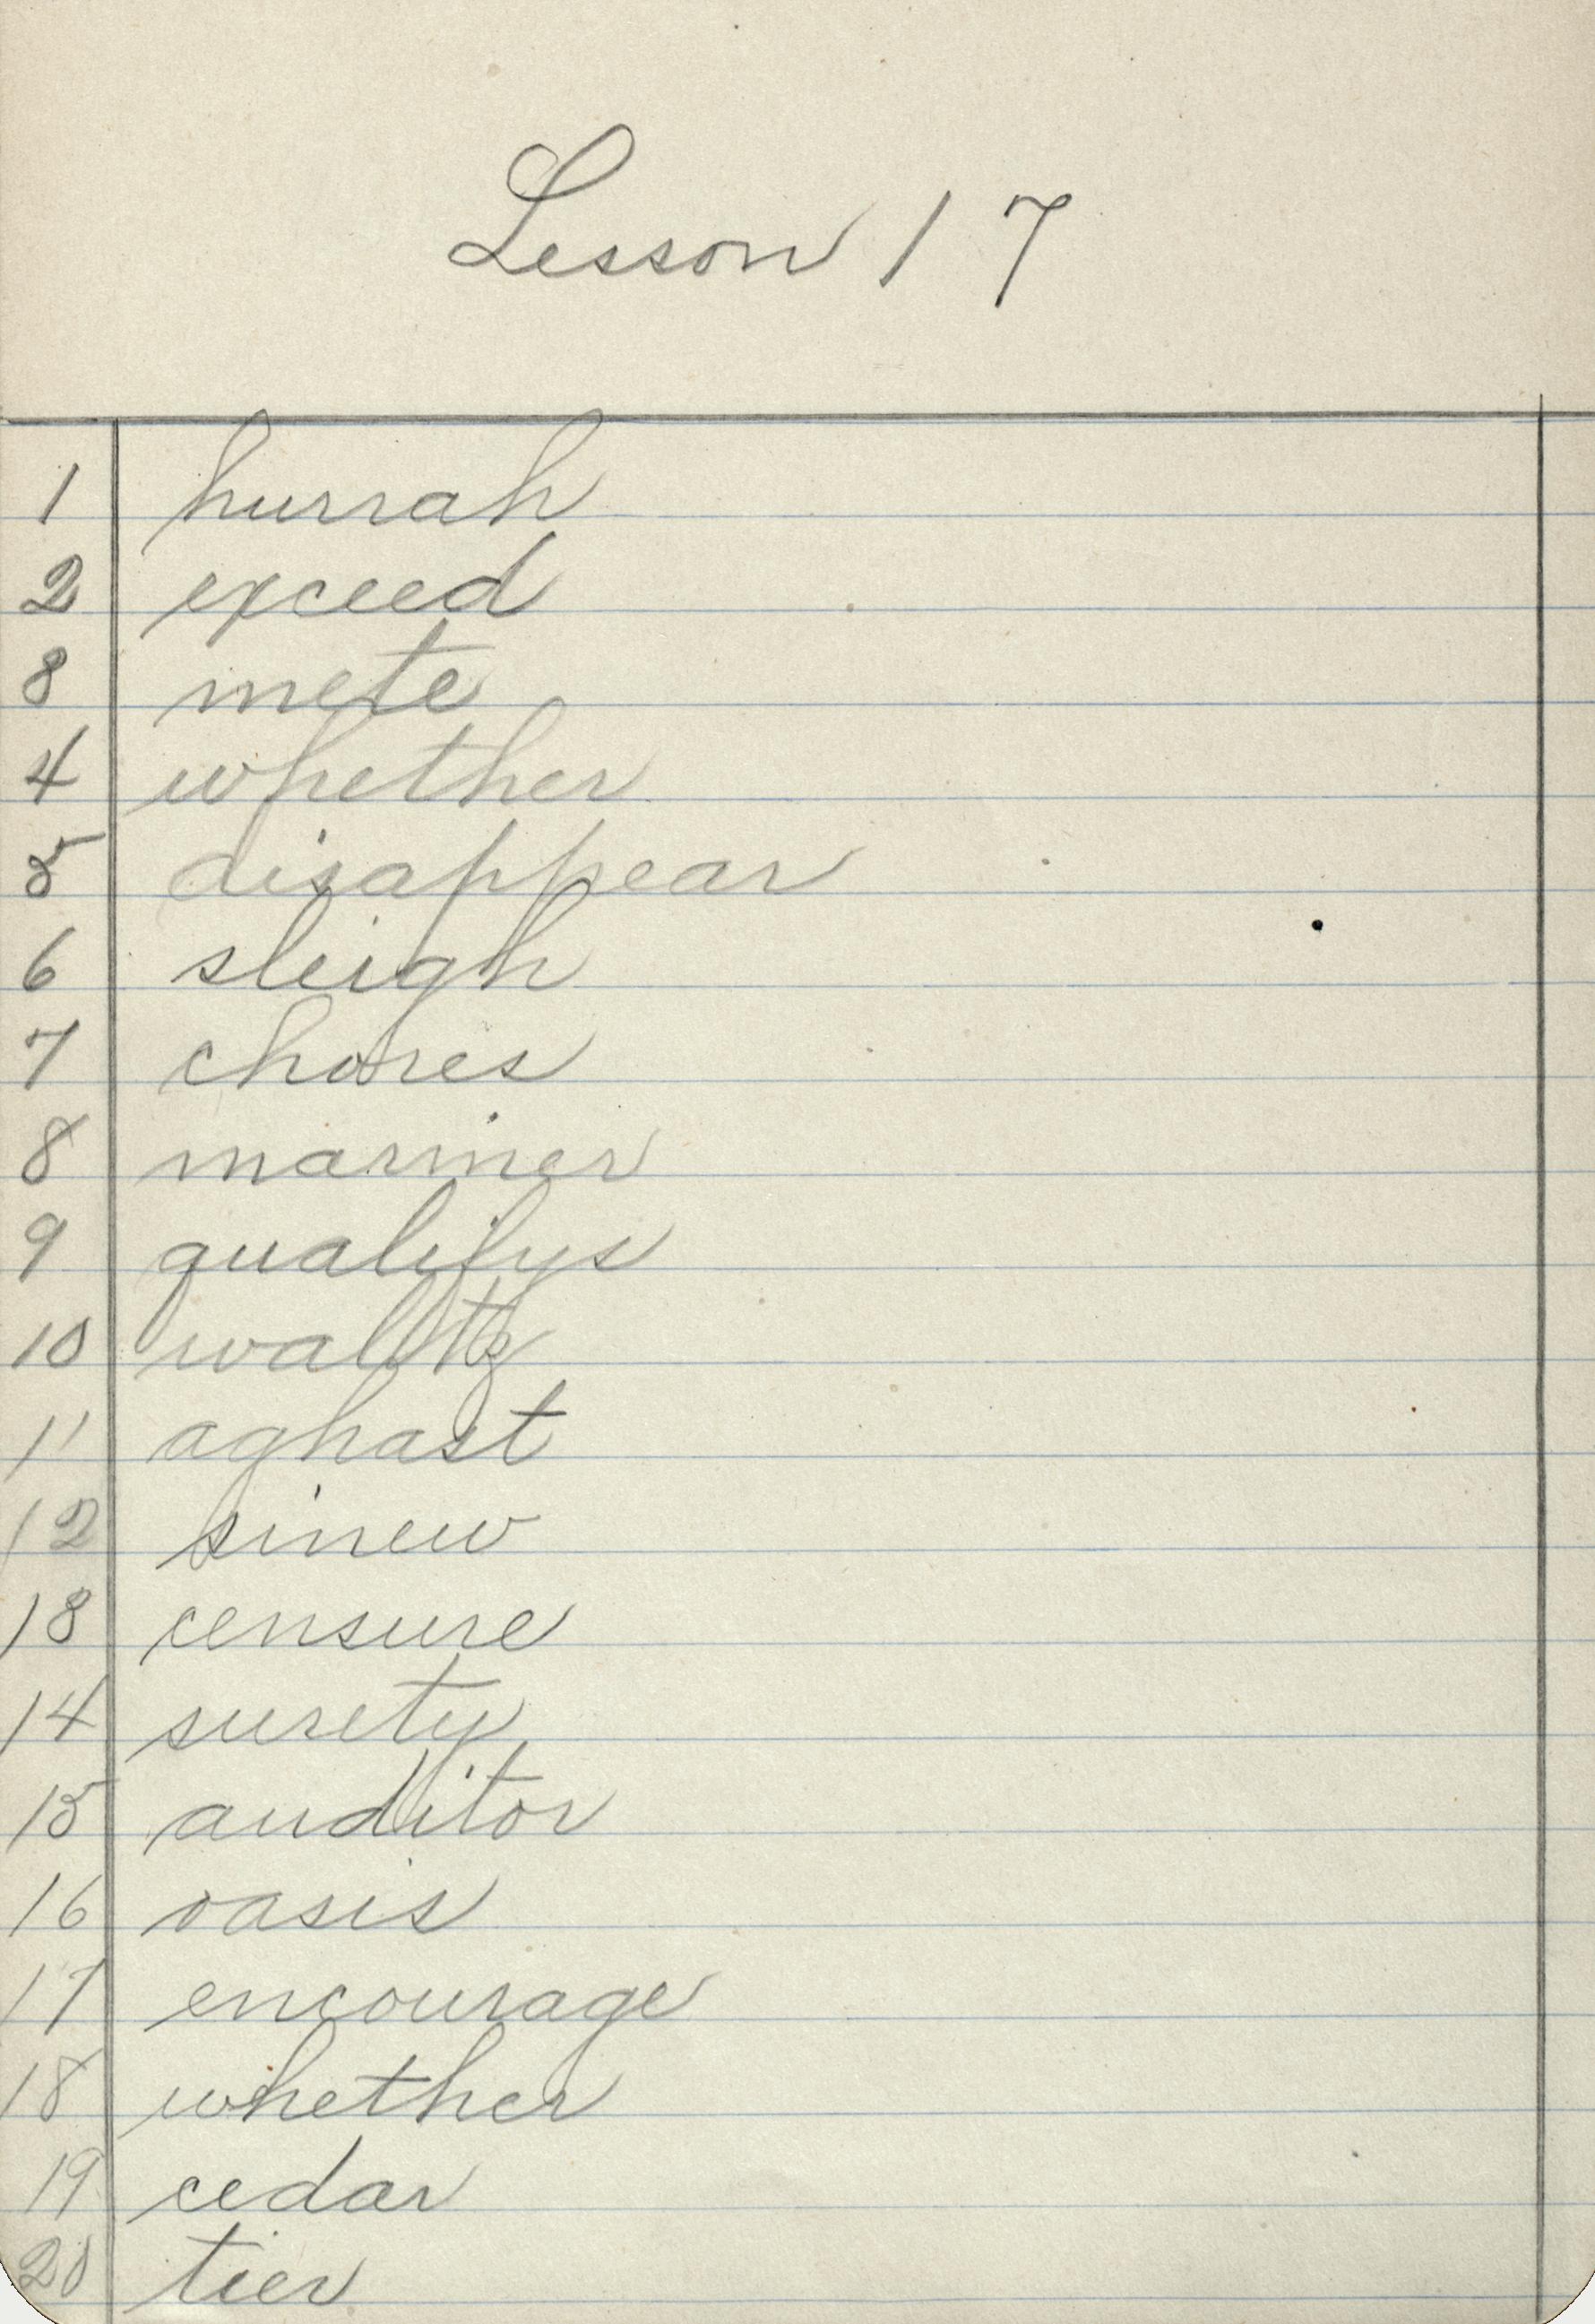 Lesson 17
1 hurrah
2 exceed
3 mete
4 whether
5 disappear
6 sleigh
7 chores
8 mariner
9 qualifys
10 waltz
11 aghast
12 sinew
13 censure
14 surety
15 auditor
16 oasis
17 encourage
18 whether
19 cedar
20 tier